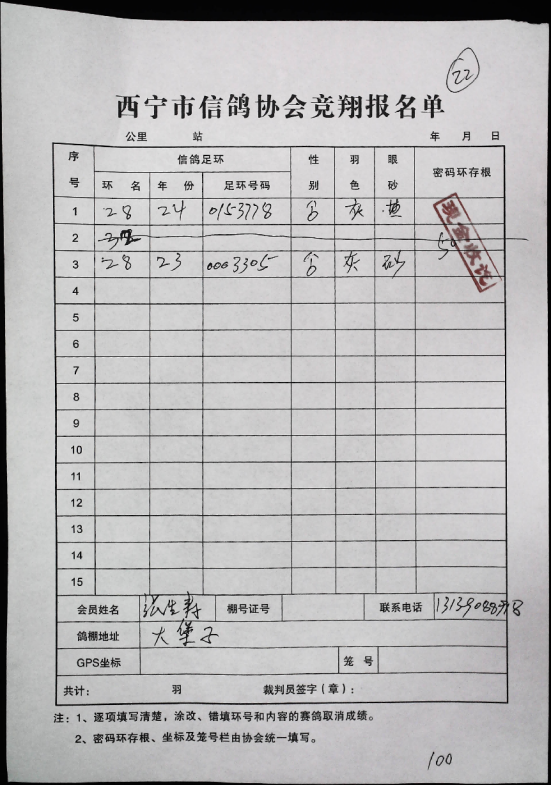 22
西宁市信鸽协会竞翔报名单
公里 站 年 月 日
序号 信鸽足环 性别 羽色 眼砂 密码环存根
环 名 年 份 足环号码
1 28 24 0153778 灰 黄
2
3 28 23 0003305 灰 砂
50
现金收讫
4
5
6
7
8
9
10
11
12
13
14
15
会员姓名 张生寿 棚号证号 联系电话
鸽棚地址 大堡子
GPS坐标 笼 号
共计： 羽 裁判员签字（章）：
注：1、逐项填写清楚，涂改、错填环号和内容的赛鸽取消成绩。
2、密码环存根、坐标及笼号栏由协会统一填写。
100